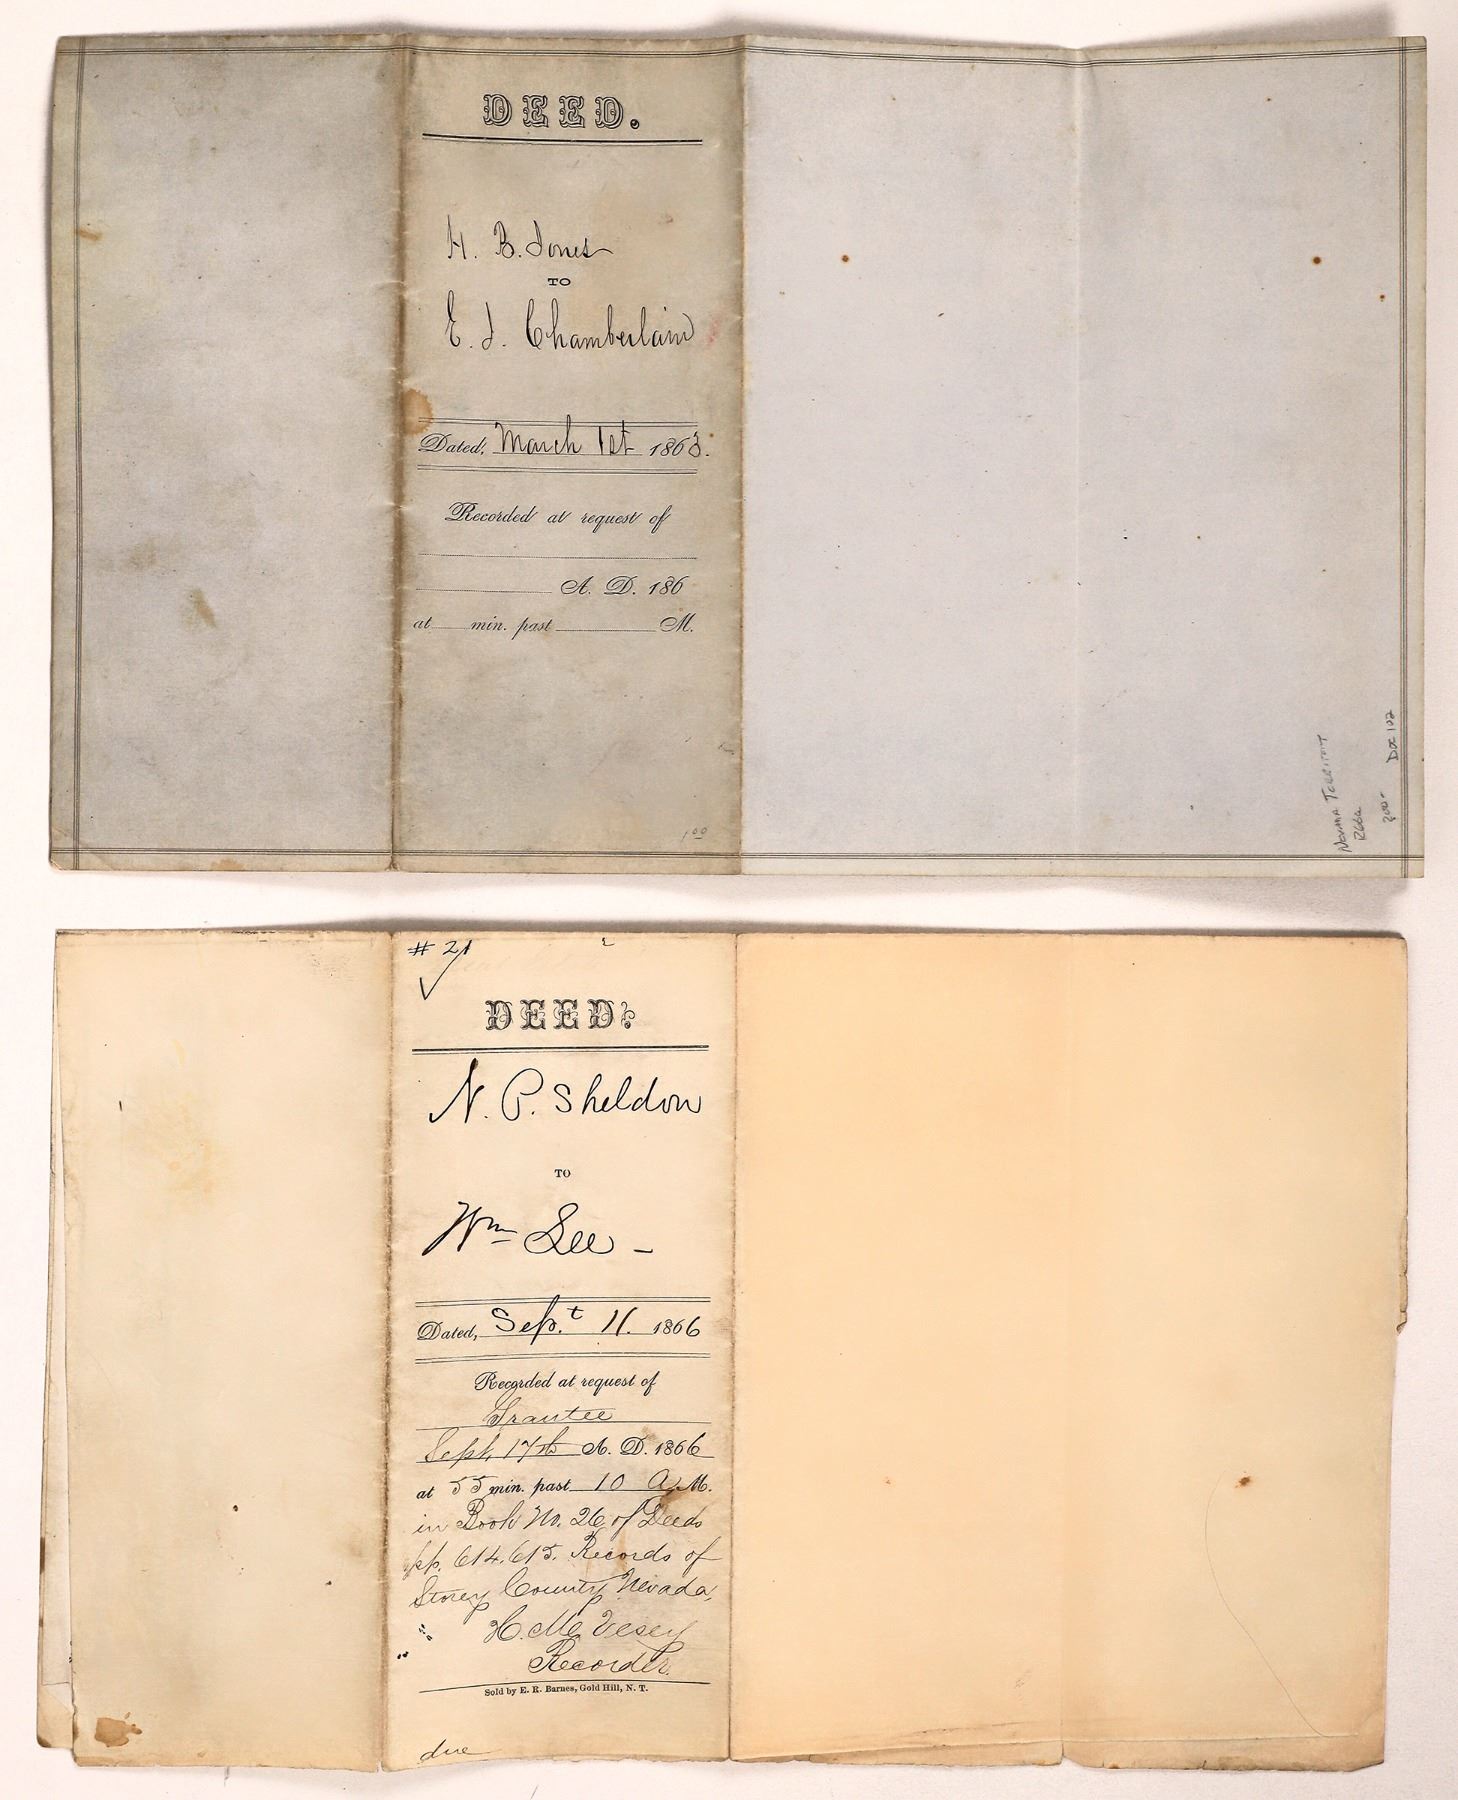 DEED.
H. B. Jones
TO
E. J. Chamberlain
Dated, March 1st 1863.
Recorded at request of
A. D. 186
at min. past M.
1 00
NEVADA TERRITORY
200-
DOC 102
# 21
DEED.
N. P. Sheldon
TO
Wm Lee -
Dated, Sept. 11. 1866
Recorded at request of
Grantee
Sept. 17th A. D. 1866
at 55 min. past 10 A M.
in Book No. 26 of Deeds
pp. 614.615. Records of
Storey County Nevada,
Recorder.
Sold by E. R. Barnes, Gold Hill, N. T.
due